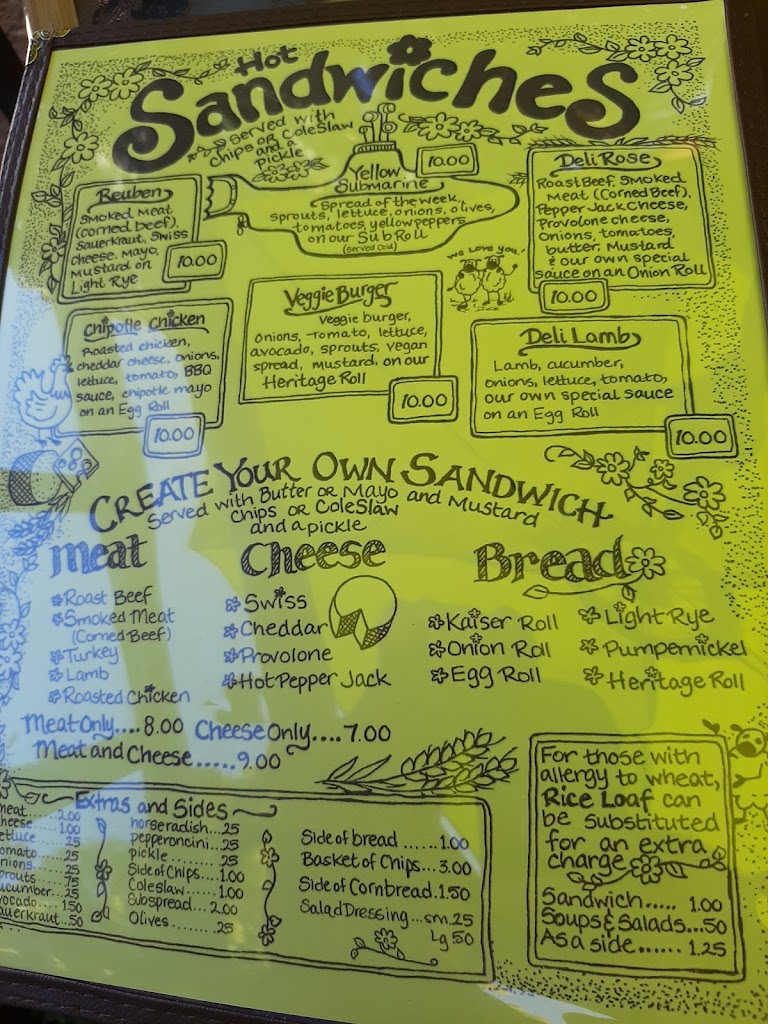 Hot
Sandwiches
Served with
chips or ColeSlaw
and a
pickle
Yellow
Submarine
10.00
Spread of the week,
sprouts, lettuce, onions, olives,
tomatoes, yellow peppers
on our Sub Roll
(Served Cold)
Deli Rose
Roast Beef, Smoked
Meat (Corned Beef),
Pepper Jack Cheese,
Provolone cheese,
Onions, tomatoes,
butter, Mustard
& our own special
sauce on an Onion Roll
10.00
Reuben
Smoked Meat
(corned beef),
Sauerkraut, Swiss
cheese, Mayo,
Mustard on
Light Rye
10.00
We Love you!
Chipotle Chicken
Roasted chicken,
cheddar cheese, onions,
lettuce, tomato, BBQ
sauce, chipotle mayo
on an Egg Roll
10.00
Veggie Burger
Veggie burger,
onions, Tomato, lettuce,
avocado, sprouts, vegan
spread, mustard, on our
Heritage Roll
10.00
Deli Lamb
Lamb, cucumber,
onions, lettuce, tomato,
our own special sauce
on an Egg Roll
10.00
CREATE YOUR OWN SANDWICH
Served with Butter or Mayo and Mustard
Chips or ColeSlaw
and a pickle
Meat
Roast Beef
Smoked Meat
(Corned Beef)
Turkey
Lamb
Roasted Chicken
Cheese
Swiss
Cheddar
Provolone
Hot Pepper Jack
Bread
Kaiser Roll
Onion Roll
Egg Roll
Light Rye
Pumpernickel
Heritage Roll
Meat Only....8.00 Cheese Only....7.00
Meat and Cheese.....9.00
Extras and Sides
meat......2.00
cheese......1.00
ettuce......25
omato......25
nions......25
prouts......75
ucumber..25
vocado....1.50
auerkraut..50
horseradish...25
pepperoncini...25
pickle........25
Side of Chips...1.00
Coleslaw......1.00
Subspread...2.00
Olives.......25
Side of bread ......1.00
Basket of Chips...3.00
Side of Cornbread.1.50
Salad Dressing...sm.25
Lg.50
For those with
allergy to wheat,
Rice Loaf can
be substituted
for an extra
charge
Sandwich..... 1.00
Soups & Salads...50
As a side...... 1.25